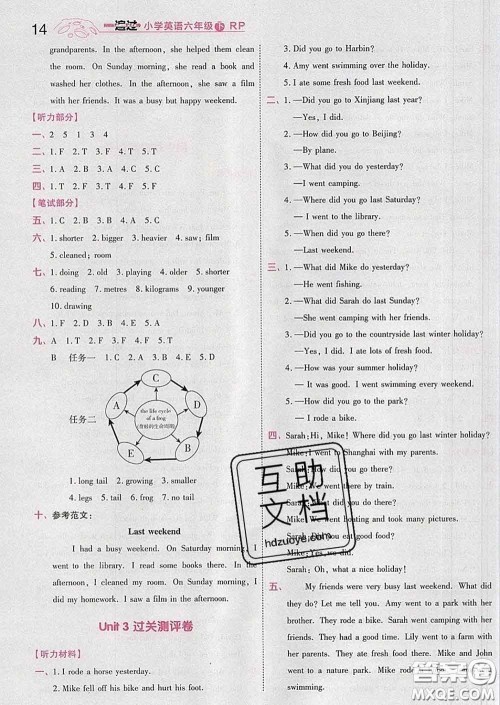 14 一遍过 小学英语六年级 下 RP
grandparents. In the afternoon, she helped mom
cook. On Sunday morning, she read a book and
washed her clothes. In the afternoon, she saw a film
with her friends. It was a busy but happy weekend.
【听力部分】
一、2 5 1 3 4
二、1. F 2. T 3. F 4. T 5. F
三、1. A 2. B 3. A 4. C 5. B
四、1. F 2. T 3. T 4. T 5. F
【笔试部分】
五、1. C 2. A 3. B 4. D 5. D
六、1. shorter 2. bigger 3. heavier 4. saw; film
5. cleaned; room
七、1. doing 2. old 3. taller 4. did 5. stayed
6. reading 7. metres 8. kilograms 9. younger
10. shorter
八、1. B 2. A 3. C 4. C 5. D
九、A 1. F 2. F 3. T 4. F 5. F
B 任务一 1. B 2. C 3. E 4. A 5. D
任务二
C
A
D
E
B
the life cycle
of a frog
(青蛙的生命周期)
1. long tail 2. growing 3. smaller
4. legs 5. tail 6. frog
十、参考范文:
Last weekend
I had a busy weekend. On Saturday morning, I
went to the library. I read some books there. In the
afternoon, I cleaned my room. On Sunday morning, I
did my homework. I played football in the afternoon.
Unit 3 过关测评卷
【听力材料】
一、1. I rode a horse yesterday.
2. Mike fell off his bike and hurt his foot.
3. Did you go to Harbin?
4. Amy went swimming over the holiday.
5. I ate some fresh food last weekend.
二、1. —Did you go to Xinjiang last year?
—Yes, I did.
2. —How did you go to Beijing?
—By plane.
3. —What did you do yesterday?
—I went camping.
4. —Where did you go last Saturday?
—I went to the library.
5. —When did you go shopping?
—Last weekend.
三、1. —What did Mike do yesterday?
—He went fishing.
2. —What did Sarah do last Sunday?
—She went camping with her friends.
3. —Did you go to the countryside last winter holiday?
—Yes, I did. I ate lots of fresh food.
4. —Was it good?
—Yes. I went swimming every weekend.
5. —How did you go to the park?
—I rode a bike.
四、Sarah: Hi, Mike! Where did you go last winter holiday?
Mike: I went to Shanghai with my parents.
Sarah: How did you go there?
Mike: We went there by train.
Sarah: What did you do there?
Mike: We went boating and took many pictures.
Sarah: Did you eat good food?
Mike: Yes, we did.
Sarah: Oh! It sounds great.
五、My friends were very busy last weekend. What did
they do? Let me tell you. Amy went to a park with her
brother. They rode a bike there. Sarah went to a
farm and ate good food. Lily went to a farm with her
parents. They rode a horse there. Mike and John
went to a nature park. They went camping and
took many pictures. They were happy.
互助
文档
hdzuoye.com
答案圈
MXQE.COM